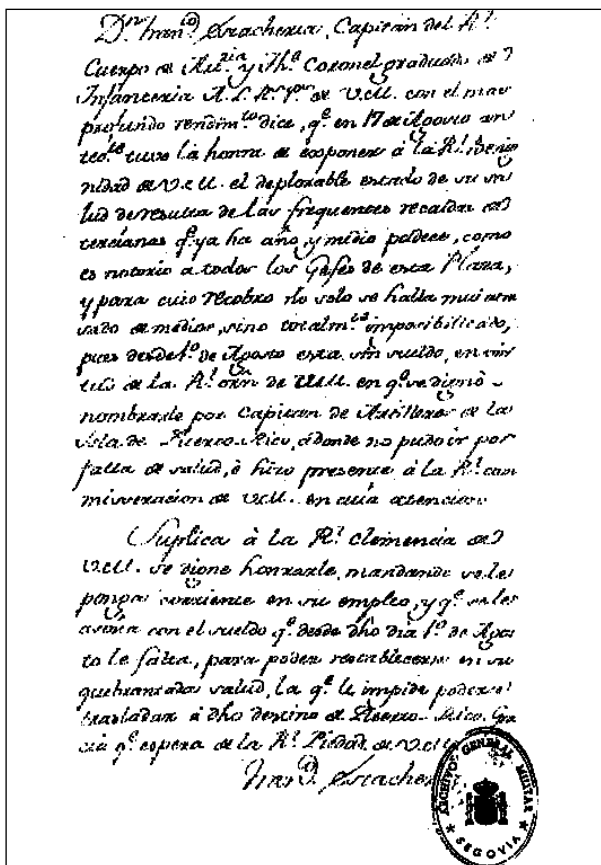 Dn. Franco. Estacheria, Capitan del Rl.
Cuerpo de Artria. y Thte. Coronel graduado de
Infanteria A. L. Rs. Ps. de V.M. con el mas
profundo rendimto. dice, qe. en 17 de Agosto an
tecte. tuvo la honra de exponer à la Rl. Benig
nidad de V.M. el deplorable estado de su sa
lud de resulta de las frequentes recaidas de
tercianas qe. ya ha año, y midio padece, como
es notorio a todos los Gefes de esta Plaza,
y para cuio recobro no solo se halla mui atra
sado de medios, sino totalmte. imposibilitado,
pues desde 1º. de Agosto esta sin sueldo, en vir
tud de la Rl. orn de V.M. en qe. se dignò
nombrarle por Capitan de Artilleros de la
Isla de Puerto-Rico, à donde no pudo ir por
falta de salud, è hizo presente à la Rl. con
miseracion de V.M. en cuia atencion
Suplica à la Rl. Clemencia de
V.M. se digne honrarle, mandando se le
ponga corriente en su empleo, y qe. se les
asista con el sueldo qe. desde dho dia 1º. de Agos
to le falta, para poder restablecerse en su
quebrantada salud, la qe. le impide poderse
trasladar à dho destino de Puerto-Rico. Gra
cia qe. espera de la Rl. Piedad de V.M.
Franco. Estacheria
ARCHIVO GENERAL MILITAR
★ SEGOVIA ★